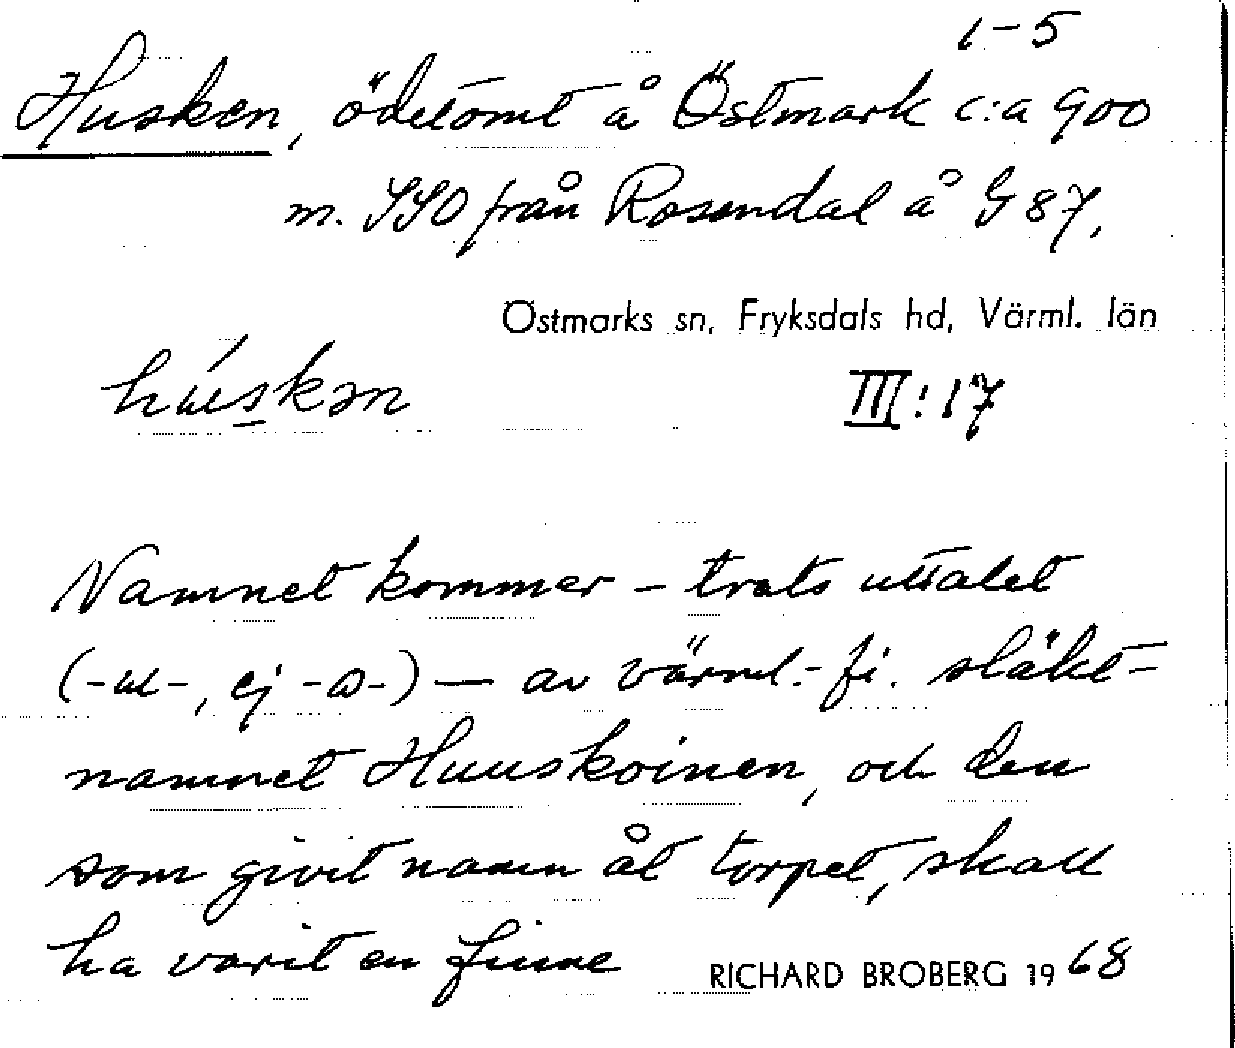 1-5
Husken, ödetomt å Östmark c:a 900
m. SSO från Rosendal å G 87,
Östmarks sn, Fryksdals hd, Värml. län
húskən
III:17
Namnet kommer - trots uttalet
(-u-, ej -ɷ-) — av värml.-fi. släkt-
namnet Huuskoinen, och den
som givit namn åt torpet, skall
ha varit en finne
RICHARD BROBERG 1968